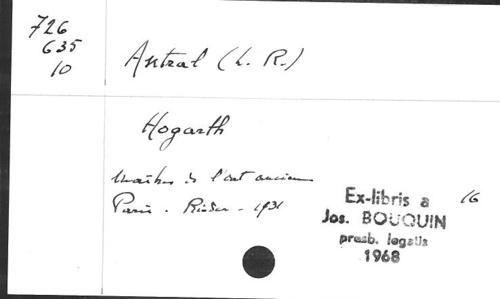 726
635
10
Antral (L. R.)
Hogarth
Maîtres de l'art ancien
Paris - Rieder - 1931
16
Ex-libris a
Jos. BOUQUIN
presb. legatis
1968